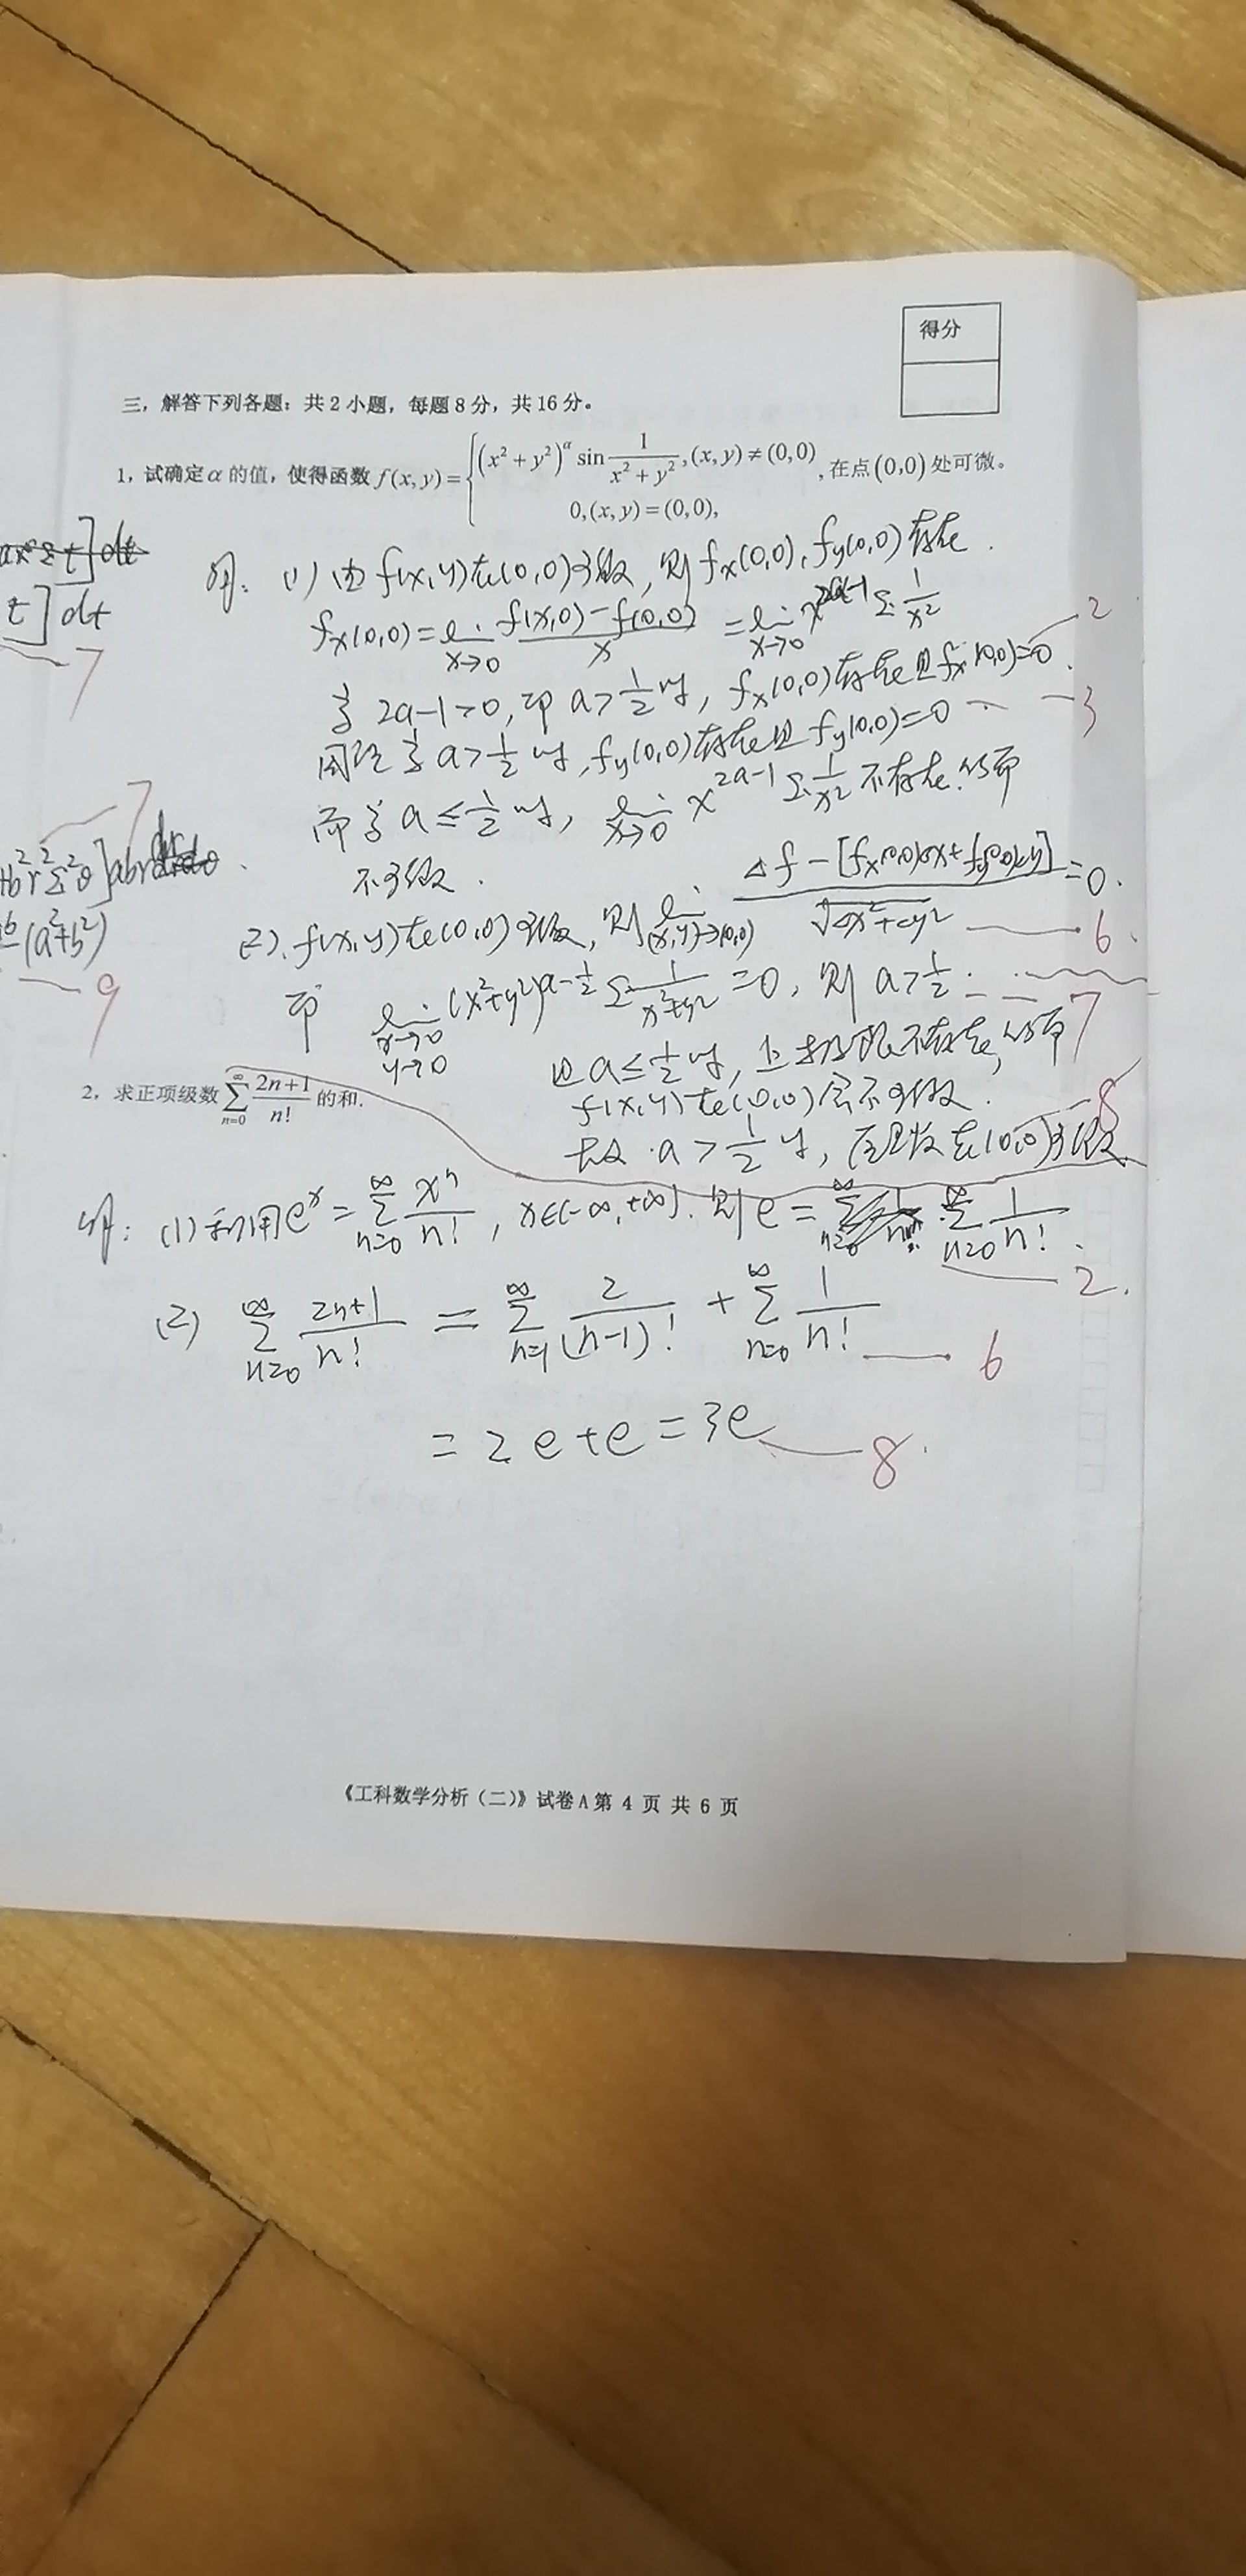 得分
三，解答下列各题：共2小题，每题8分，共16分。
1，试确定α的值，使得函数 f(x,y)={(x²+y²)^α sin 1/(x²+y²),(x,y)≠(0,0)，在点(0,0)处可微。
0,(x,y)=(0,0),
t]dt
7
解：(1) 由f(x,y)在(0,0)可微，则fx(0,0), fy(0,0)存在.
fx(0,0)=lim x→0 (f(x,0)-f(0,0))/x =lim x→0 x^(2a-1) sin 1/x²
2
当 2a-1>0, 即 a>1/2时, fx(0,0)存在且fx(0,0)=0.
同理当a>1/2时, fy(0,0)存在且fy(0,0)=0
3
而当a≤1/2时, lim x→0 x^(2a-1) sin 1/x² 不存在.从而
不可微.
7
(a²+b²)
9
(2). f(x,y)在(0,0)可微, 则lim (x,y)→(0,0) (Δf-[fx(0,0)Δx+fy(0,0)Δy])/√(Δx²+Δy²)=0.
6
即 lim x→0 y→0 (x²+y²)^(a-1/2) sin 1/(x²+y²) =0, 则 a>1/2
7
且a≤1/2时, 上极限不存在, 从而
f(x,y)在(0,0)处不可微.
8
故 a>1/2时, 函数在(0,0)可微
2，求正项级数 ∑_{n=0}^{∞} (2n+1)/n! 的和.
解：(1) 利用e^x=∑_{n=0}^{∞} x^n/n!, x∈(-∞,+∞). 则e=∑_{n=0}^{∞} 1/n!.
2.
(2) ∑_{n=0}^{∞} (2n+1)/n! = ∑_{n=1}^{∞} 2/(n-1)! + ∑_{n=0}^{∞} 1/n!
6
= 2e+e=3e
8.
《工科数学分析（二）》试卷A第 4 页 共 6 页